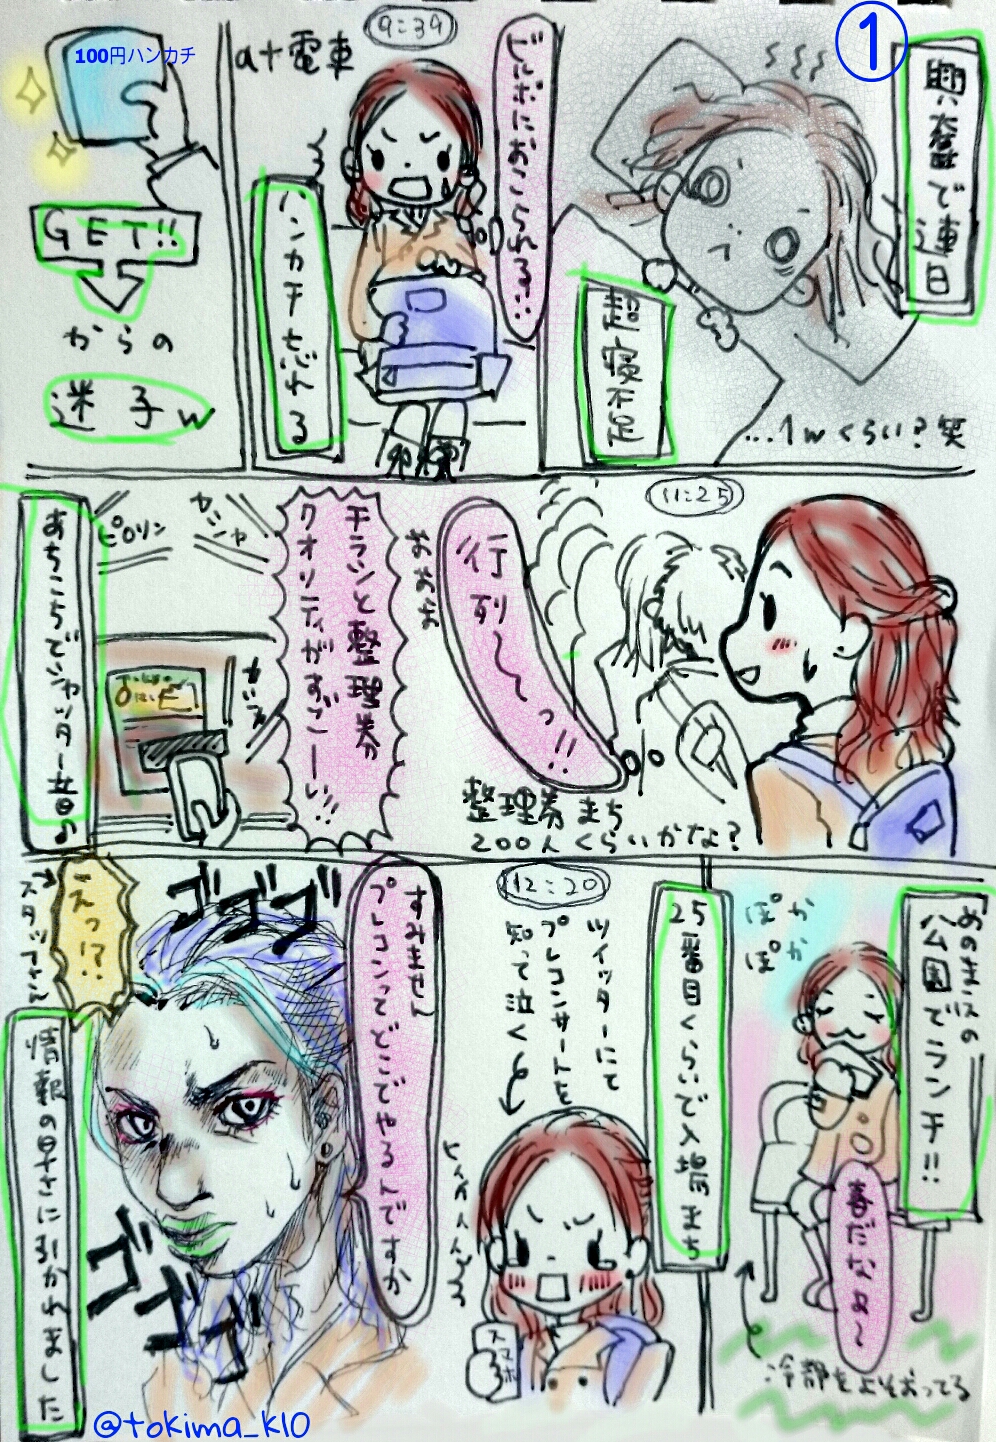 ①
興奮で連日
超寝不足
…1wくらい?笑
9:39
at電車
ビルボにおこられる!!
ハンカチ忘れる
100円ハンカチ
GET!!
からの
迷子w
11:25
行列〜〜っ!!
おおお
整理券まち
200人くらいかな?
チラシと整理券
クオリティがすごーーい!!
カシャ
ピロリン
あちこちでシャッター音♪
めのまえの
公園でランチ!!
ぽか
ぽか
春だなぁ〜
25番目くらいで入場まち
12:20
ツイッターにて
プレコンサートを
知って泣く
スマホ
すみません
プレコンってどこでやるんですか
ゴゴゴ
ゴゴゴ
えっ!?
スタッフさん
情報の早さに引かれました
@tokima_k10